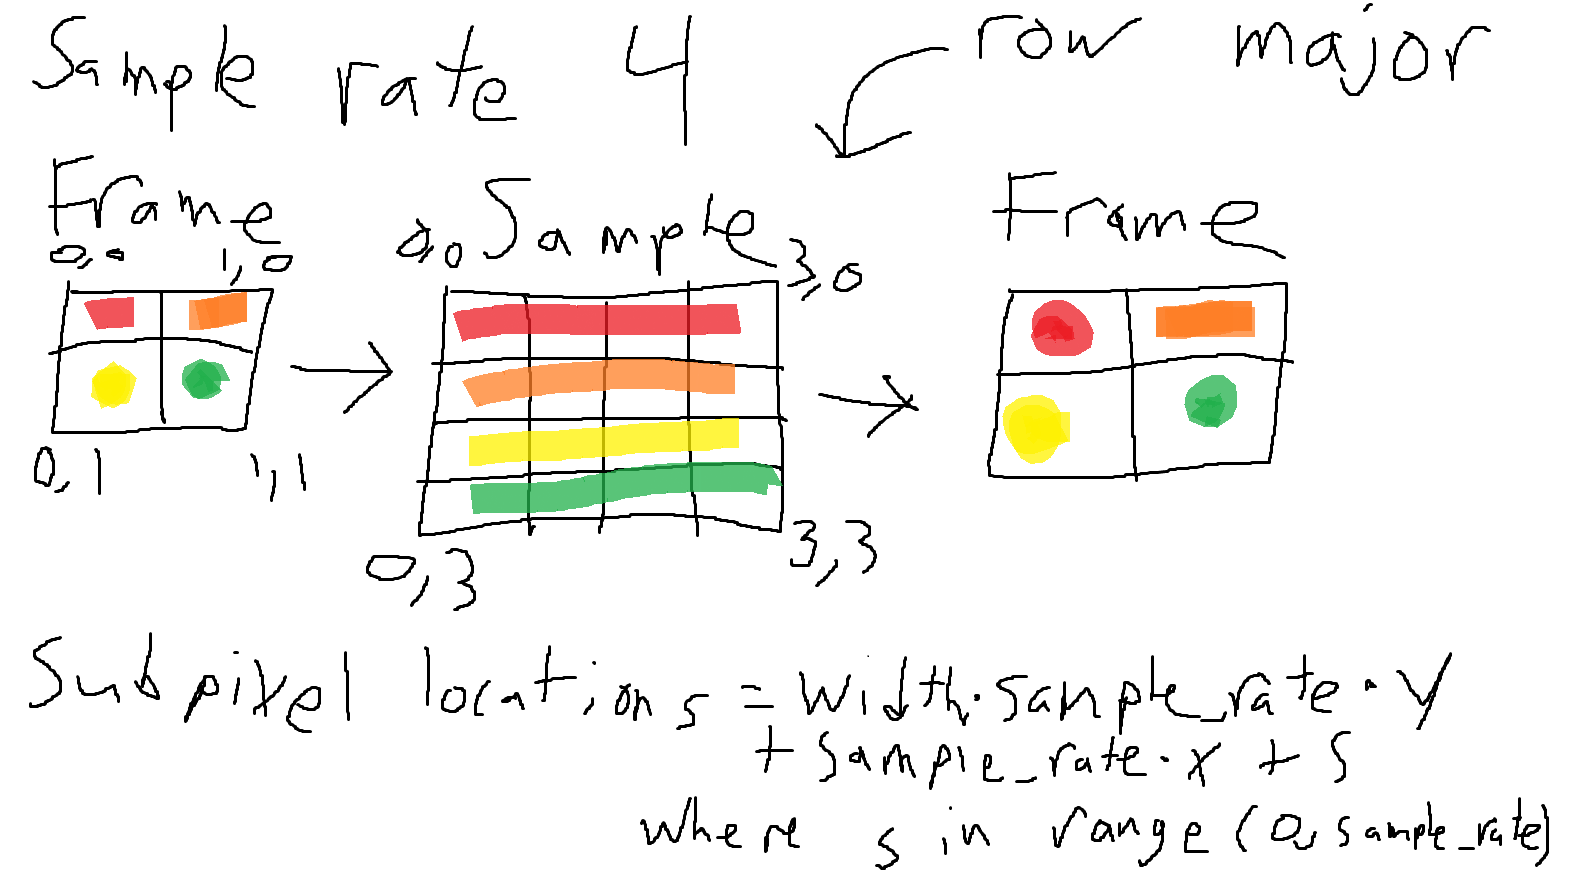 Sample rate 4
row major
Frame
0,0 1,0
0,1 1,1
Sample
0,0 3,0
0,3 3,3
Frame
Subpixel locations = width·sample_rate·y
+ sample_rate·x + s
where s in range(0, sample_rate)